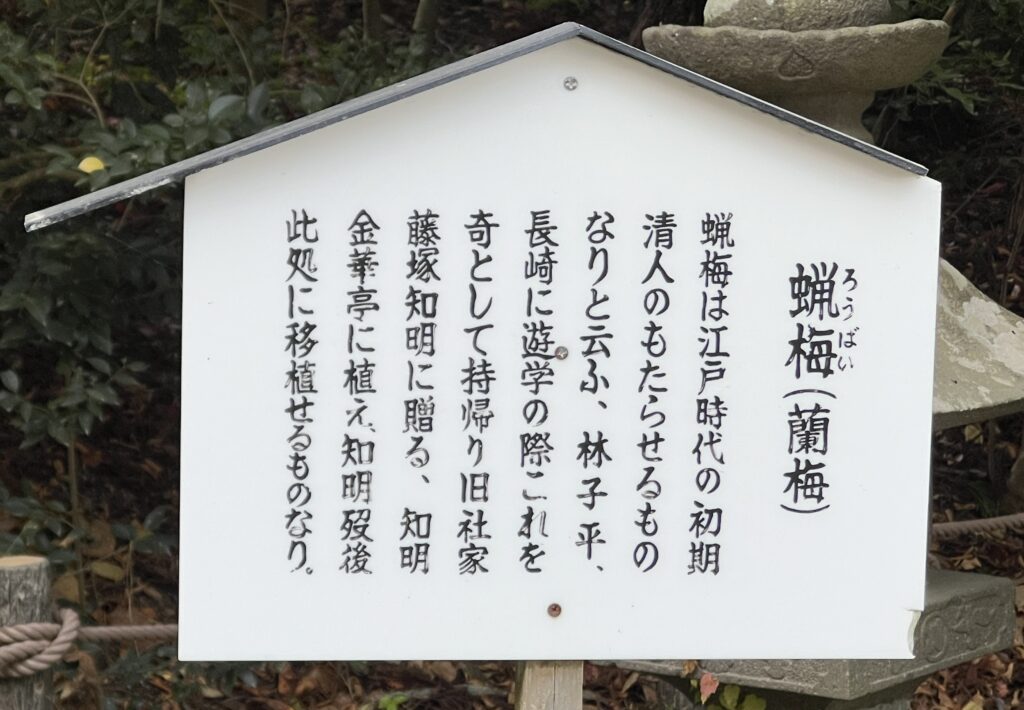 蝋梅(蘭梅)
ろうばい
蝋梅は江戸時代の初期
清人のもたらせるもの
なりと云ふ、林子平、
長崎に遊学の際これを
奇として持帰り旧社家
藤塚知明に贈る、知明
金華亭に植え、知明歿後
此処に移植せるものなり。